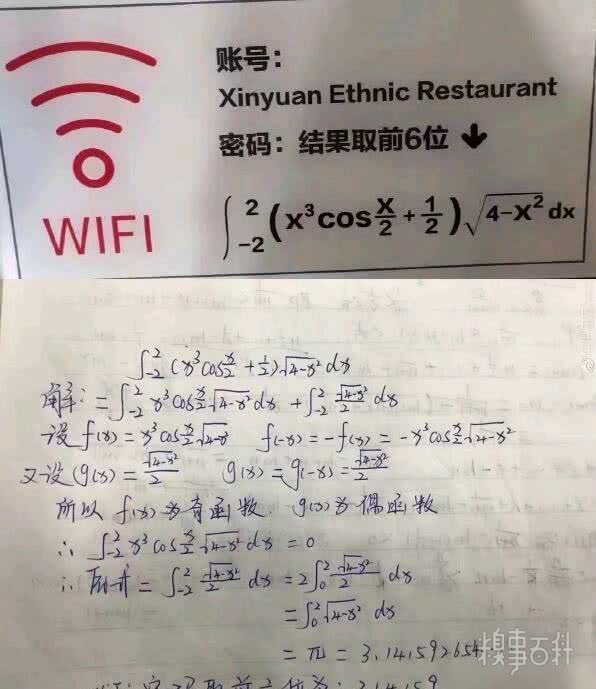 账号:
Xinyuan Ethnic Restaurant
密码: 结果取前6位 ↓
WIFI
∫_{-2}^{2} (x³cos x/2 + 1/2)√(4-x²) dx
∫_{-2}^{2} (x³cos x/2 + 1/2)√(4-x²) dx
解: = ∫_{-2}^{2} x³cos x/2 √(4-x²) dx + ∫_{-2}^{2} √(4-x²)/2 dx
设 f(x) = x³cos x/2 √(4-x) f(-x) = -f(x) = -x³cos x/2 √(4-x²)
又设 g(x) = √(4-x²)/2 g(x) = g(-x) = √(4-x²)/2
所以 f(x)为奇函数. g(x)为偶函数
∴ ∫_{-2}^{2} x³cos x/2 √(4-x²) dx = 0
∴ 原式 = ∫_{-2}^{2} √(4-x²)/2 dx = 2∫_{0}^{2} √(4-x²)/2 dx
= ∫_{0}^{2} √(4-x²) dx
= π = 3.141592654
糗事百科